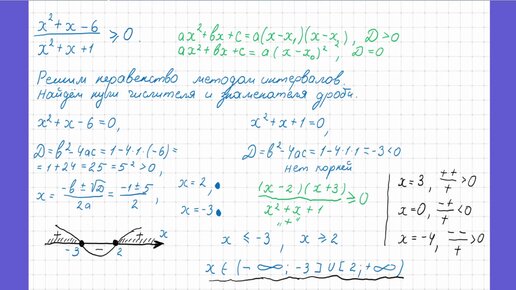 x²+x-6 / x²+x+1 ≥ 0.
ax²+bx+c=a(x-x₁)(x-x₂), D>0
ax²+bx+c=a(x-x₀)², D=0
Решим неравенство методом интервалов.
Найдём нули числителя и знаменателя дроби.
x²+x-6=0,
x²+x+1=0,
D=b²-4ac=1-4·1·(-6)=
=1+24=25=5²>0,
D=b²-4ac=1-4·1·1=-3<0
нет корней
x= -b±√D / 2a = -1±5 / 2,
x=2,
x=-3
(x-2)(x+3) / x²+x+1 ≥0
"+"
x=3, ++/+ >0
x=0, -+/+ <0
x=-4, --/+ >0
+ -3 - 2 + x
x ≤-3, x ≥2
x∈(-∞;-3]∪[2;+∞)